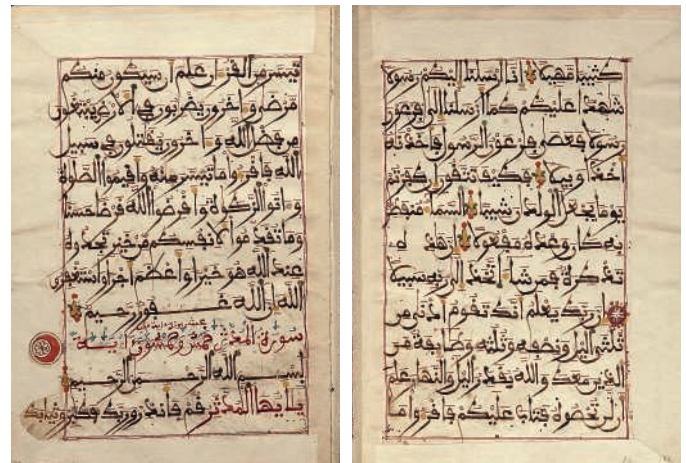 كثيبا مهيلا انا ارسلنا اليكم رسولا
شهدا عليكم كما ارسلنا الى فرعون
رسولا فعصى فرعون الرسول فاخذنه
اخذا وبيلا فكيف تتقون ان كفرتم
يوما يجعل الولدن شيبا السما منفطر
به كان وعده مفعولا ان هذه
تذكرة فمن شا اتخذ الى ربه سبيلا
ان ربك يعلم انك تقوم ادنى من
ثلثى اليل ونصفه وثلثه وطايفة من
الذين معك والله يقدر اليل والنهار علم
ان لن تحصوه فتاب عليكم فاقروا ما
تيسر من القران علم ان سيكون منكم
مرضى واخرون يضربون في الارض يبتغون
من فضل الله واخرون يقتلون في سبيل
الله فاقروا ما تيسر منه واقيموا الصلوة
واتوا الزكوة واقرضوا الله قرضا حسنا
وما تقدموا لانفسكم من خير تجدوه
عند الله هو خيرا واعظم اجرا واستغفروا
الله ان الله غفور رحيم
سورة المدثر خمس وخمسون اية
بسم الله الرحمن الرحيم
يايها المدثر قم فانذر وربك فكبر وثيابك